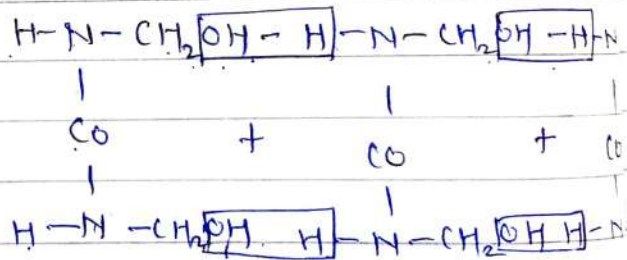 H-N-CH₂OH-H-N-CH₂OH-H-N
| | |
CO + CO + CO
| | |
H-N-CH₂OH H-N-CH₂OH H-N